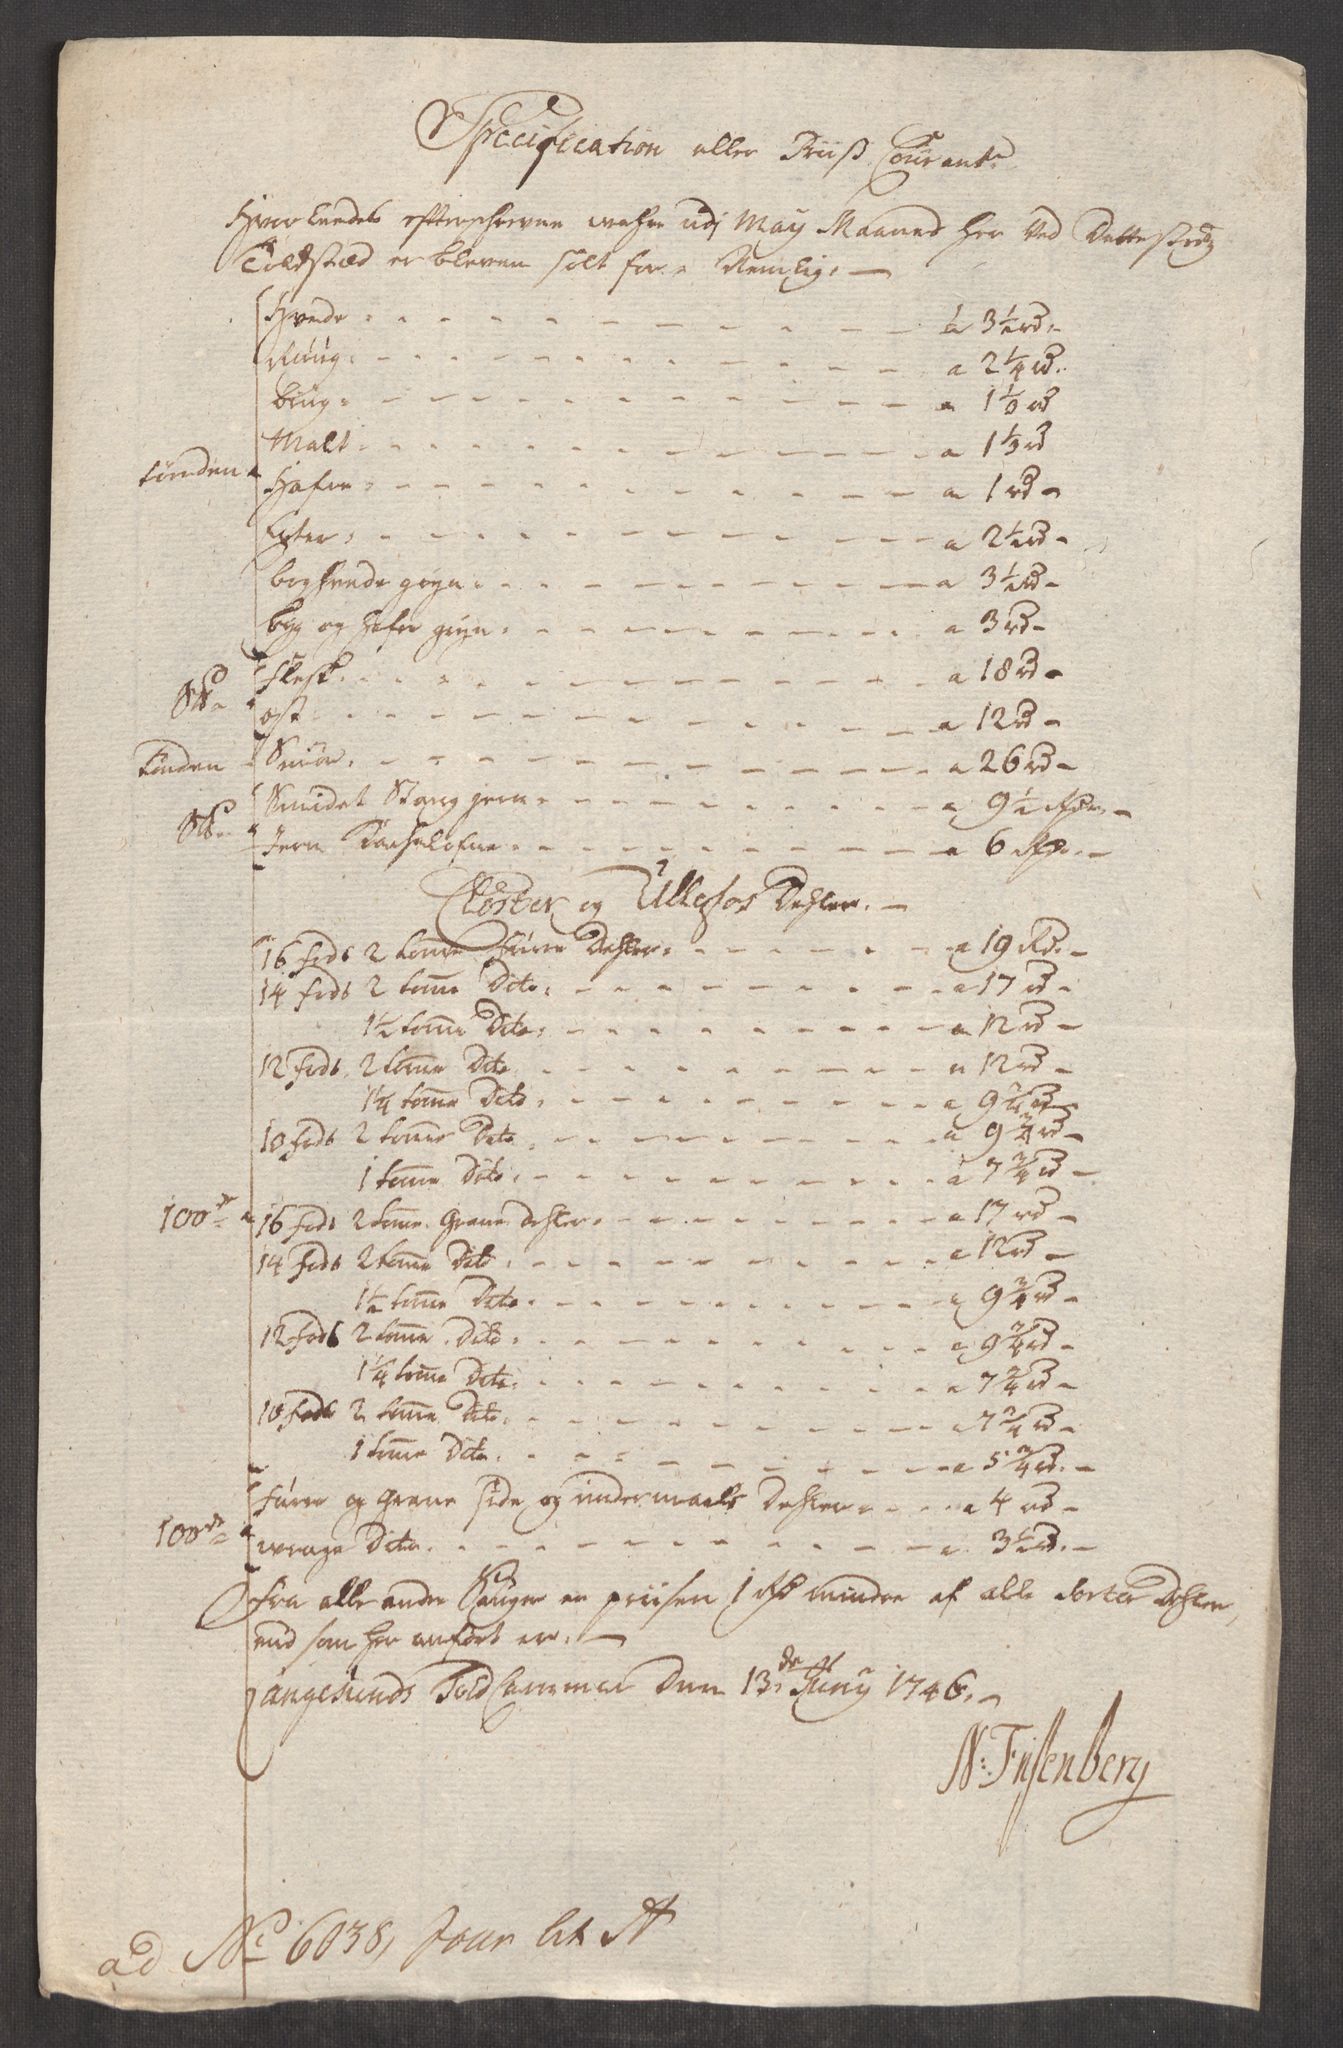 Specification eller Priiß Courant
Hvorledes efterschrevne wahre udj May Maaned her Ved Dette
Toldsted er bleven solt for, Nemlig:
Hvede a 3½ rd
Rüüg a 2¼ rd
biüg a 1⅓ rd
Malt a 1⅓ rd
tönden
Hafre a 1 rd
Erter a 2½ rd
boghvede gryn a 3½ rd
byg og hafre gryn a 3 rd
Flesk a 18 rd
S℔
ost a 12 rd
tönden Smör a 26 rd
Smidet Stang jern a 9½ rdr
S℔
Jern Kachelofne a 6 rdr
Closter og Üllefos Dehler
16 fods 2 tomme fürre Dehler a 19 Rd
14 fods 2 tomme Dito a 17 rd
1½ tomme Dito a 12 rd
12 fods 2 tomme Dito a 12 rd
1¼ tomme Dito a 9¾ rd
10 fods 2 tomme Dito a 9¾ rd
1 tomme Dito a 7¾ rd
100de 16 fods 2 tomme Grane Dehler a 17 rd
14 fods 2 tomme Dito a 12 rd
1½ tomme Dito a 9¾ rd
12 fods 2 tomme Dito a 9¾ rd
1¼ tomme Dito a 7¾ rd
10 fods 2 tomme Dito a 7¾ rd
1 tomme Dito a 5¾ rd
fürre og grane side og undermaals Dehler a 4 rd
100de
wrage Dito a 3½ rd
Fra alle andre Sauger er priisen 1 rdr mindre af alle sorter Dehler,
end som her anfört er.
Langesunds Told Cammer Den 13de Juny 1746.
N: Fisenberg
ad No 6038, Jour lit A